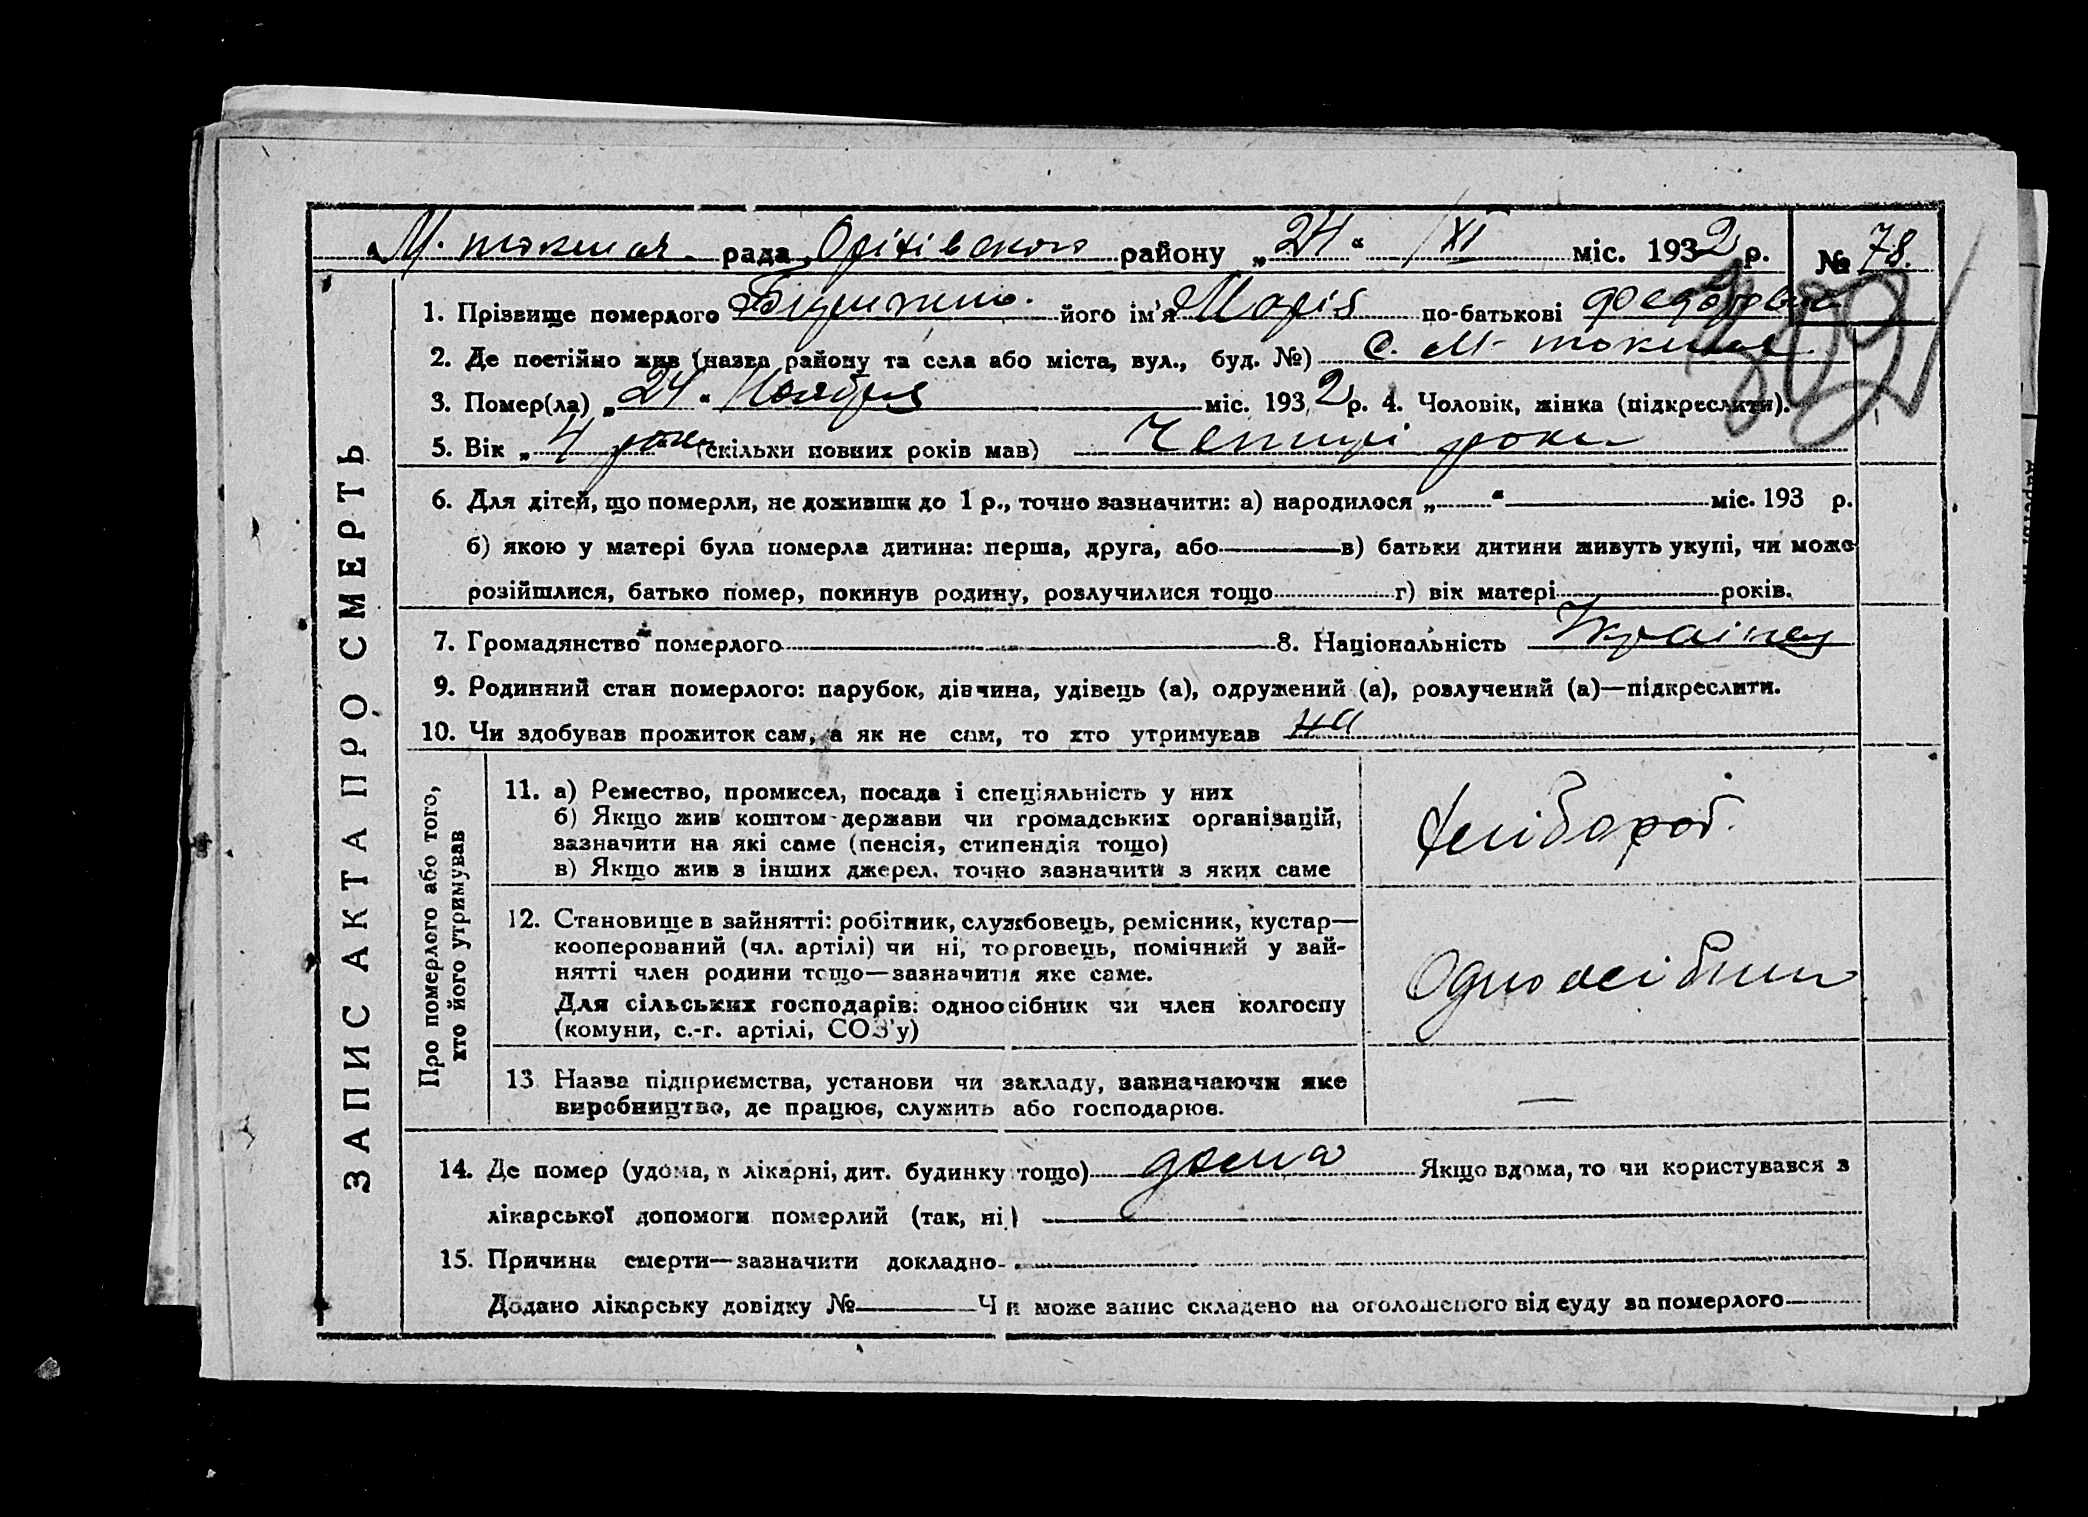 М. токмач. рада Оріхівского району „24“ XI міс. 1932 р. № 78.
ЗАПИС АКТА ПРО СМЕРТЬ
1. Прізвище померлого його ім'я Марія по-батькові Федоровна
309
2. Де постійно жив (назва району та села або міста, вул., буд. №) С. М- токмач
3. Помер(ла) „24“ Ноября міс. 1932 р. 4. Чоловік, жінка (підкреслити).
5. Вік „4 роки“ (скільки повних років мав) Чотирі роки
6. Для дітей, що померли, не доживши до 1 р., точно зазначити: а) народилося „ “ міс. 193 р.
б) якою у матері була померла дитина: перша, друга, або в) батьки дитини живуть укупі, чи може
розійшлися, батько помер, покинув родину, розлучилися тощо г) вік матері років.
7. Громадянство померлого 8. Національність Українец
9. Родинний стан померлого: парубок, дівчина, удівець (а), одружений (а), розлучений (а)—підкреслити.
10. Чи здобував прожиток сам, а як не сам, то хто утримував на
Про померлого або того,
хто його утримував
11. а) Ремество, промисел, посада і спеціяльність у них
б) Якщо жив коштом держави чи громадських організацій,
зазначити на які саме (пенсія, стипендія тощо)
в) Якщо жив з інших джерел, точно зазначити з яких саме
хлібороб.
12. Становище в зайнятті: робітник, службовець, ремісник, кустар—
кооперований (чл. артілі) чи ні, торговець, помічний у зай-
нятті член родини тощо—зазначити яке саме.
Для сільських господарів: одноосібник чи член колгоспу
(комуни, с.-г. артілі, СОЗ'у)
Одноосібник
13 Назва підприємства, установи чи закладу, зазначаючи яке
виробництво, де працює, служить або господарює.
—
14. Де помер (удома, в лікарні, дит. будинку тощо) дома Якщо вдома, то чи користувався з
лікарської допомоги померлий (так, ні)
15. Причина смерти—зазначити докладно
Додано лікарську довідку № Чи може запис складено на оголошеного від суду за померлого